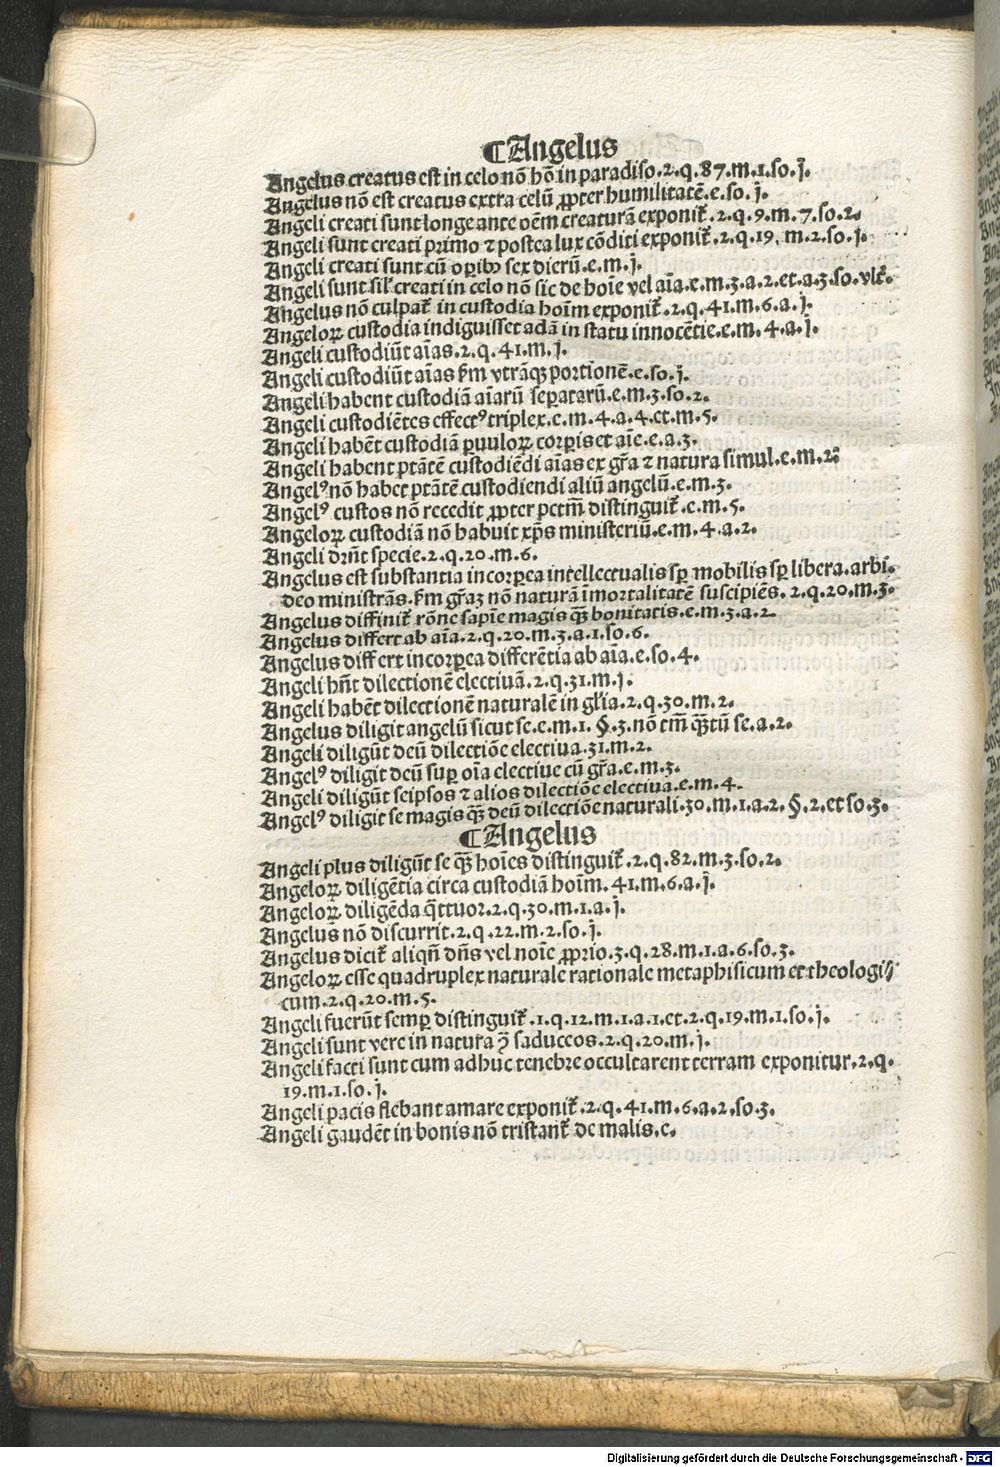 ¶Angelus
Angelus creatus est in celo nō hō in paradiso.2.q.87.m.1.so.j.
Angelus nō est creatus extra celū ꝓpter humilitatē.e.so.j.
Angeli creati sunt longe ante oēm creaturā exponit᷑.2.q.9.m.7.so.2.
Angeli sunt creati primo ⁊ postea lux cōditi exponit᷑.2.q.19.m.2.so.j.
Angeli creati sunt cū oꝑibꝰ sex dierū.e.m.j.
Angeli sunt sil᷑ creati in celo nō sic de hoīe vel aīa.e.m.3.a.2.et.a.3.so.vlt᷑.
Angelus nō culpat᷑ in custodia hoīm exponit᷑.2.q.41.m.6.a.j.
Angeloꝝ custodia indiguisset adā in statu innocētie.e.m.4.a.j.
Angeli custodiūt aīas.2.q.41.m.j.
Angeli custodiūt aīas ẜm vtrāqꝫ portionē.e.so.j.
Angeli habent custodiā aīarū seꝑatarū.e.m.3.so.2.
Angeli custodiētes effectꝰ triplex.e.m.4.a.4.et.m.5.
Angeli habēt custodiā ꝑuuloꝝ corꝑis et aīe.e.a.3.
Angeli habent ptātē custodiēdi aīas ex gr̄a ⁊ natura simul.e.m.2.
Angelꝰ nō habet ptātē custodiendi aliū angelū.e.m.3.
Angelꝰ custos nō recedit ꝓpter pctm̄ distinguit᷑.e.m.5.
Angeloꝝ custodiā nō habuit xp̄s ministeriū.e.m.4.a.2.
Angeli dr̄nt specie.2.q.20.m.6.
Angelus est substantia incorꝑea intellectualis sꝑ mobilis sꝑ libera.arbi.
deo ministrās.ẜm gr̄aꝫ nō naturā īmortalitatē suscipiēs.2.q.20.m.3.
Angelus diffinit᷑ rōne sapīe magis qꝫ̄ bonitatis.e.m.3.a.2.
Angelus differt ab aīa.2.q.20.m.3.a.1.so.6.
Angelus differt incorꝑea differētia ab aīa.e.so.4.
Angeli hn̄t dilectionē electiuā.2.q.31.m.j.
Angeli habēt dilectionē naturalē in gl̄ia.2.q.30.m.2.
Angelus diligit angelū sicut se.e.m.1.§.3.nō tm̄ qꝫ̄tū se.a.2.
Angeli diligūt deū dilectiōe electiua.31.m.2.
Angelꝰ diligit deū suꝑ oīa electiue cū gr̄a.e.m.3.
Angeli diligūt seipsos ⁊ alios dilectiōe electiua.e.m.4.
Angelꝰ diligit se magis qꝫ̄ deū dilectiōe naturali.30.m.1.a.2.§.2.et so.3.
¶Angelus
Angeli plus diligūt se qꝫ̄ hoīes distinguit᷑.2.q.82.m.3.so.2.
Angeloꝝ diligētia circa custodiā hoīm.41.m.6.a.j.
Angeloꝝ diligēda q̄ttuor.2.q.30.m.1.a.j.
Angelus nō discurrit.2.q.22.m.2.so.j.
Angelus dicit᷑ aliqn̄ dn̄s vel noīe ꝓprio.3.q.28.m.1.a.6.so.3.
Angeloꝝ esse quadruplex naturale rationale metaphisicum et theologi⸗
cum.2.q.20.m.5.
Angeli fuerūt semꝑ distinguit᷑.1.q.12.m.1.a.1.et.2.q.19.m.1.so.j.
Angeli sunt vere in natura ꝯ̄ saduceos.2.q.20.m.j.
Angeli facti sunt cum adhuc tenebre occultarent terram exponitur.2.q.
19.m.1.so.j.
Angeli pacis flebant amare exponit᷑.2.q.41.m.6.a.2.so.3.
Angeli gaudēt in bonis nō tristant᷑ de malis.e.
Digitalisierung gefördert durch die Deutsche Forschungsgemeinschaft - DFG